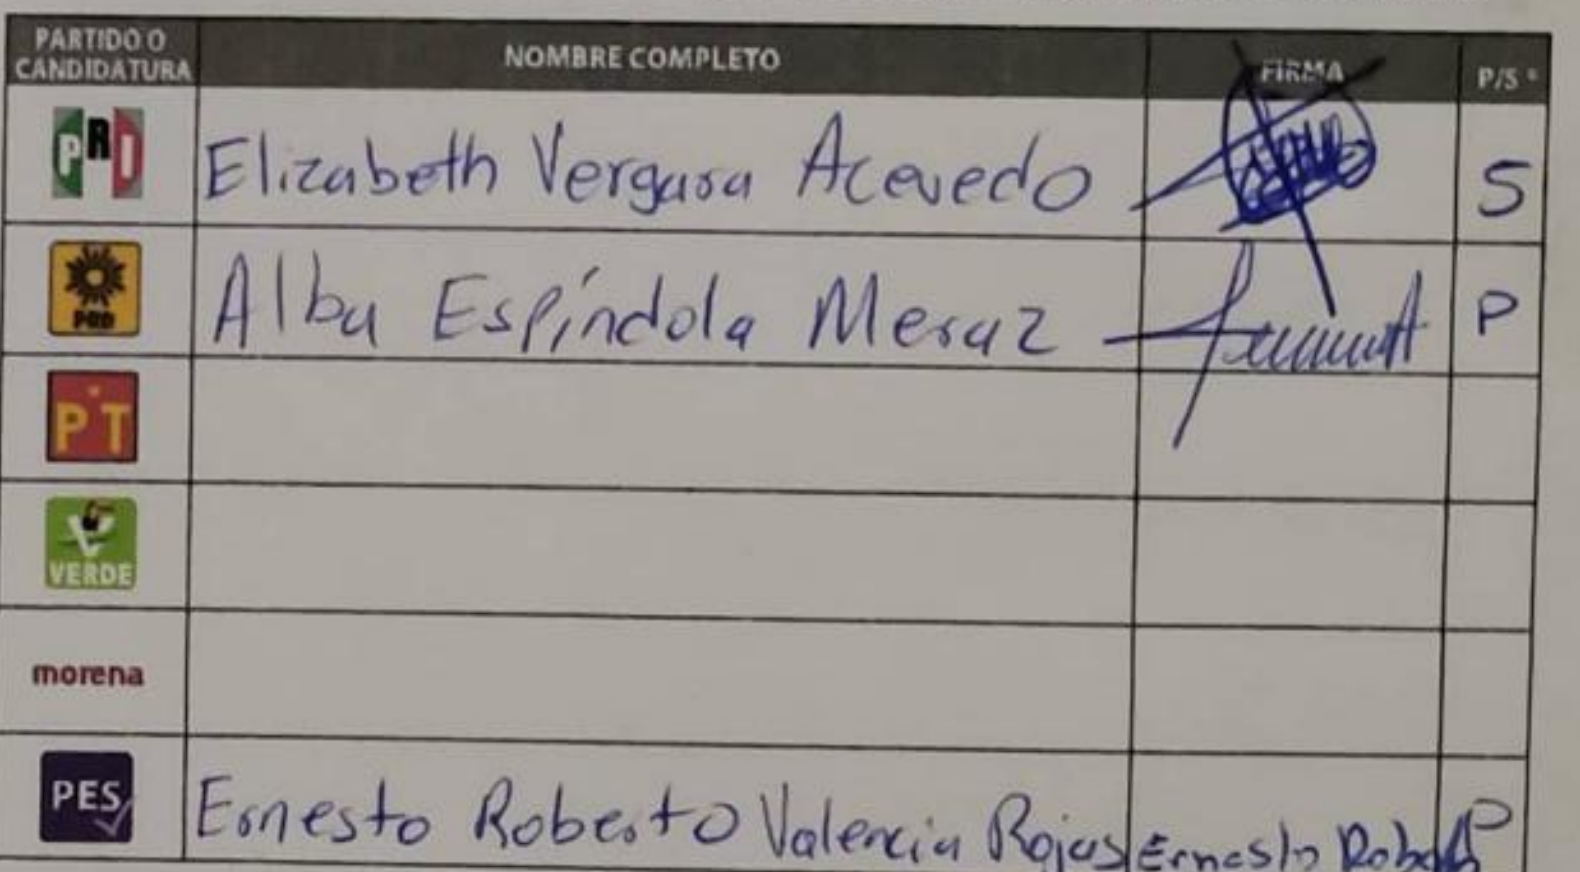 PARTIDO O CANDIDATURA NOMBRE COMPLETO FIRMA P/S *
PRI Elizabeth Vergara Acevedo S
PRD Alba Espíndola Meraz P
PT
VERDE
morena
PES Ernesto Roberto Valencia Rojas Ernesto Robert P